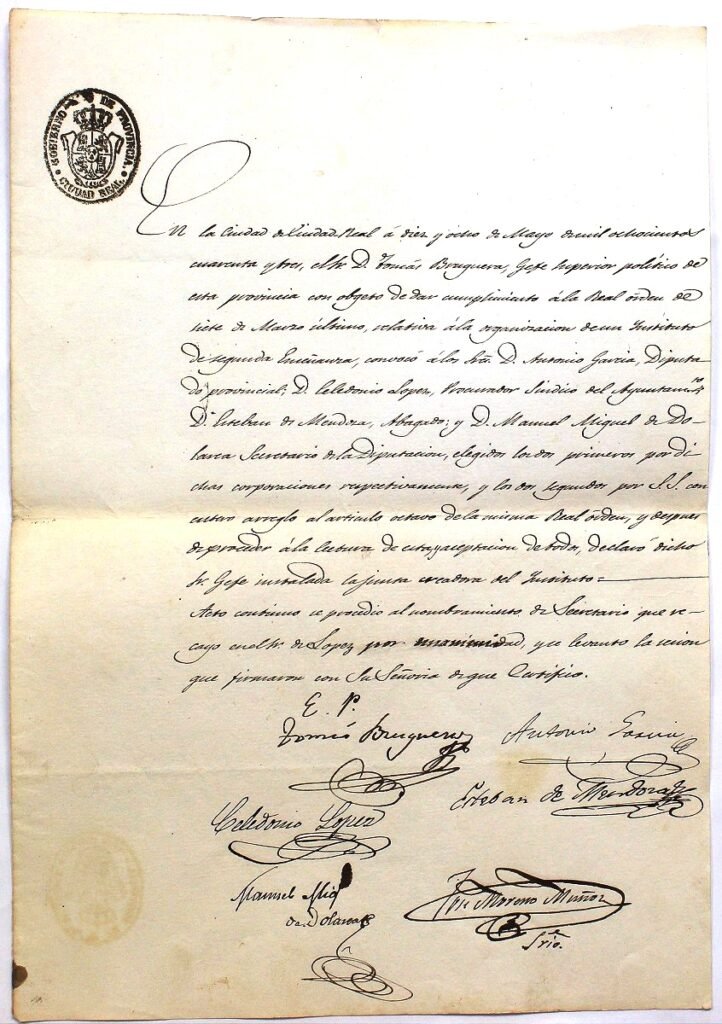 GOBIERNO DE PROVINCIA.
CIUDAD REAL
En la Ciudad de Ciudad Real á diez y ocho de Mayo de mil ochocientos
cuarenta y tres, el Sr. D. Tomás Bruguera, Gefe superior politico de
esta provincia con objeto de dar cumplimiento á la Real órden de
siete de Marzo último, relativa á la organizacion de un Instituto
de segunda Enseñanza, convocó á los Sres. D. Antonio Garcia, Diputa-
do provincial; D. Celedonio Lopez, Procurador Sindico del Ayuntamto.
D. Esteban de Mendoza, Abogado; y D. Manuel Miguel de Do-
larea Secretario de la Diputacion, elegidos los dos primeros por di-
chas corporaciones respectivamente, y los dos segundos por S.S. con
entero arreglo al articulo octavo de la misma Real órden, y despues
de proceder á la lectura de esta y aceptacion de todos, declaró dicho
Sr. Gefe instalada la junta creadora del Instituto=
Acto continuo se procedio al nombramiento de Secretario que re-
cayo en el Sr. de Lopez por unanimidad, y se levanto la sesion
que firmaron con Su Señoria de que Certifico.
E. P.
Tomás Bruguera
Antonio Garcia
Esteban de Mendoza
Celedonio Lopez
Manuel Migl
de Dolarea
José Moreno Muñoz
Srio.